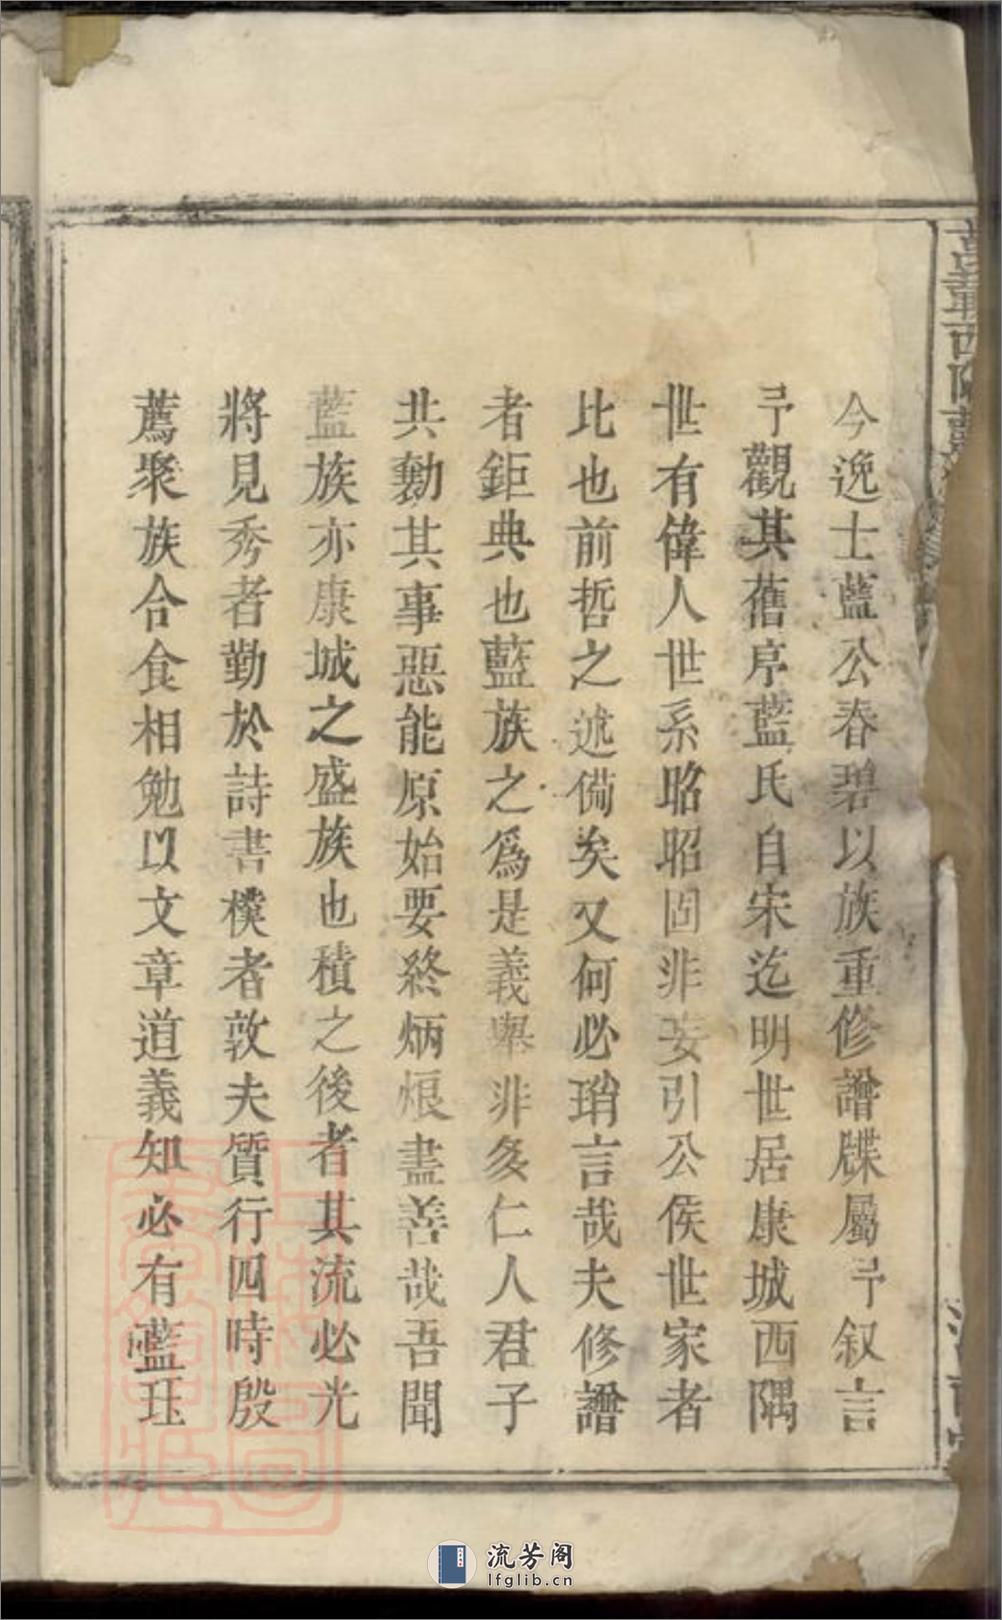 今逸士藍公春碧以族重修譜牒屬予叙言
予觀其舊序藍氏自宋迄明世居康城西隅
世有偉人世系昭昭固非妄引公侯世家者
比也前哲之述僃矣又何必瑣言哉夫修譜
者鉅典也藍族之爲是義舉非多仁人君子
共勷其事惡能原始要終炳烺盡善哉吾聞
藍族亦康城之盛族也積之後者其流必光
將見秀者勤於詩書樸者敦夫質行四時殷
薦聚族合食相勉以文章道義知必有藍玨
流芳阁
lfglib.cn